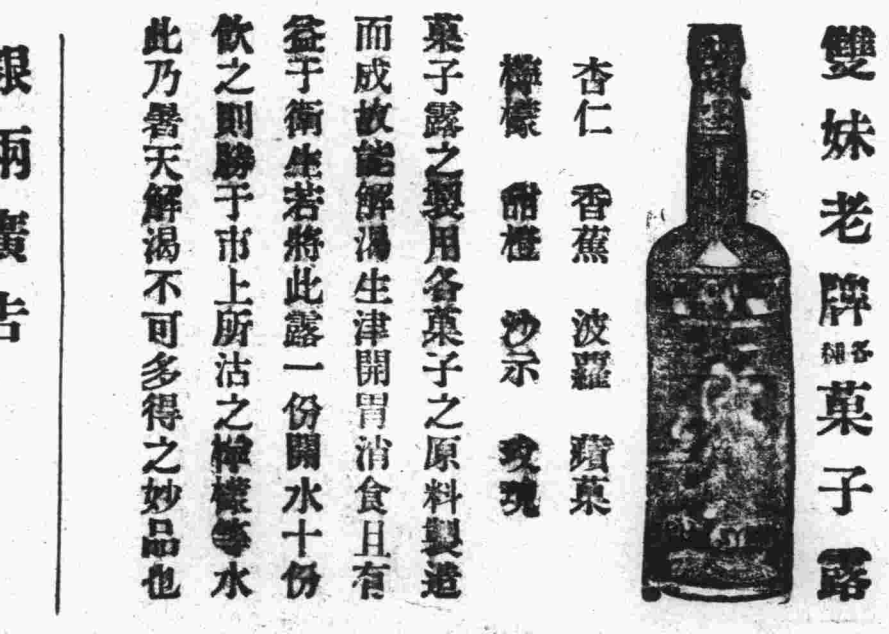 雙妹老牌各種菓子露
杏仁 香蕉 波羅 蘋菓
檸檬 甜橙 沙示 玫瑰
菓子露之製用各菓子之原料製造
而成故能解渴生津開胃消食且有
益于衛生若將此露一份開水十份
飲之則勝于市上所沽之檸檬等水
此乃暑天解渴不可多得之妙品也
銀兩廣告